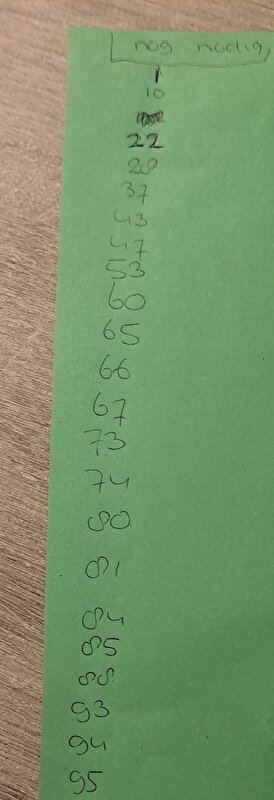 nog nodig
1
10
22
28
37
43
47
53
60
65
66
67
73
74
80
81
84
85
88
93
94
95